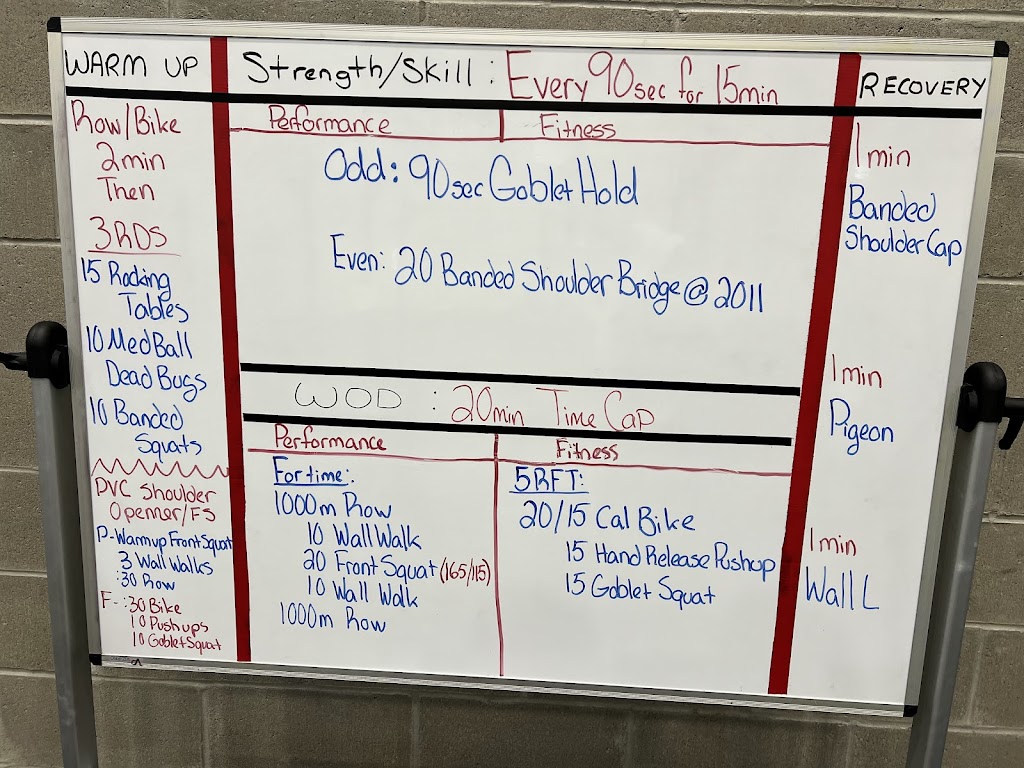 WARM UP
Row/Bike
2min
Then
3RDS
15 Rocking
Tables
10 MedBall
Dead Bugs
10 Banded
Squats
PVC Shoulder
Openner/FS
P-Warmup Front Squat
3 Wall Walks
:30 Row
F- :30 Bike
10 Pushups
10 Goblet Squat
Strength/Skill : Every 90sec for 15min
Performance
Fitness
Odd: 90sec Goblet Hold
Even: 20 Banded Shoulder Bridge @ 2011
WOD : 20min Time Cap
Performance
For time:
1000m Row
10 Wall Walk
20 Front Squat (165/115)
10 Wall Walk
1000m Row
Fitness
5RFT:
20/15 Cal Bike
15 Hand Release Pushup
15 Goblet Squat
RECOVERY
1min
Banded
Shoulder Cap
1min
Pigeon
1min
Wall L